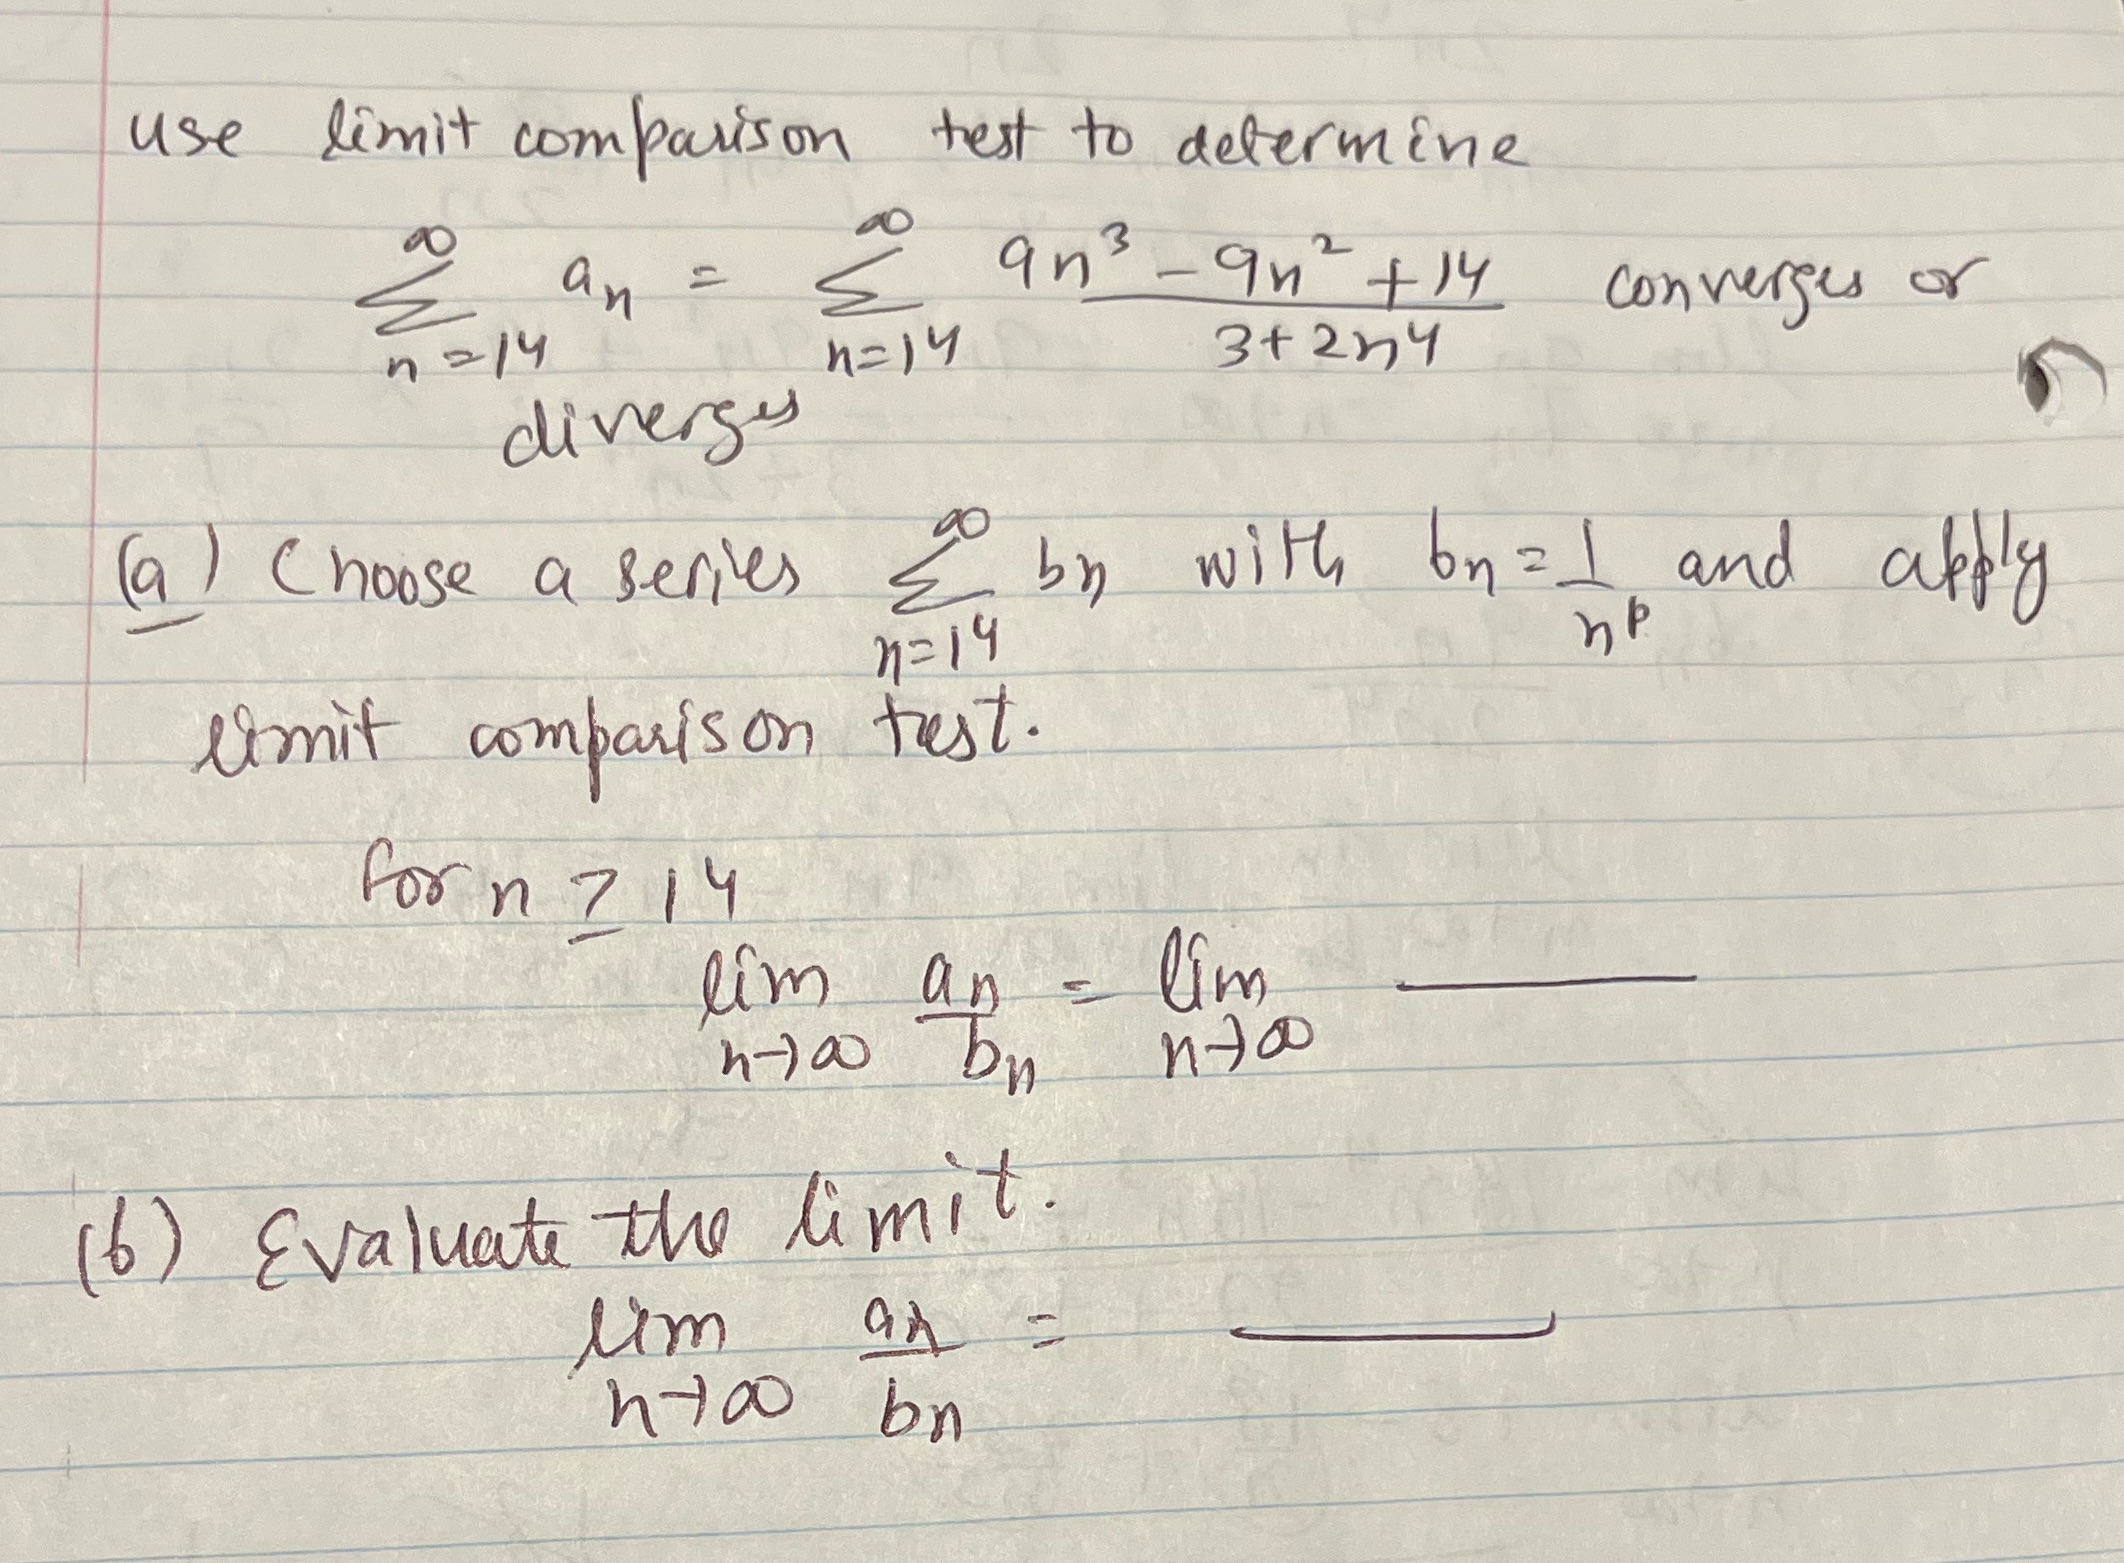 use limit comparison test to determine
∞ ∑ n=14 an = ∞ ∑ n=14 9n³ - 9n² + 14 / 3+2n4 converges or
diverges
(a) Choose a series ∞ ∑ n=14 bn with bn = 1/n^p and apply
limit comparison test.
for n ≥ 14
lim n→∞ an/bn = lim n→∞ ____
(b) Evaluate the limit.
lim n→∞ an/bn = ____